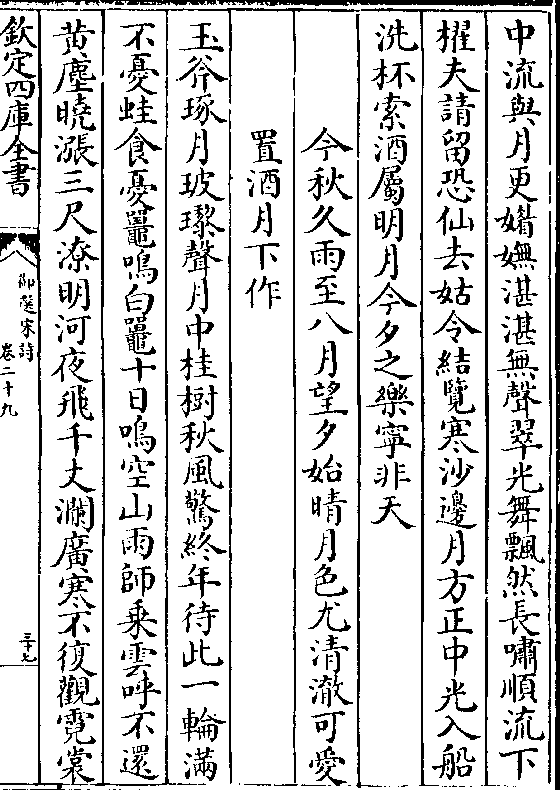 中流與月更媚嫵湛湛無聲翠光舞飄然長嘯順流下
櫂夫請留恐仙去姑令結覽寒沙邊月方正中光入船
洗杯索酒屬明月今夕之樂寧非天
今秋久雨至八月望夕始晴月色尤清澈可愛
置酒月下作
玉斧琢月玻瓈聲月中桂樹秋風驚終年待此一輪滿
不憂蛙食憂鼉鳴白鼉十日鳴空山雨師乗雲呼不還
黄塵曉漲三尺潦明河夜飛千丈瀾廣寒不復觀霓裳
欽定四庫全書
御選宋詩
卷二十九
三十九